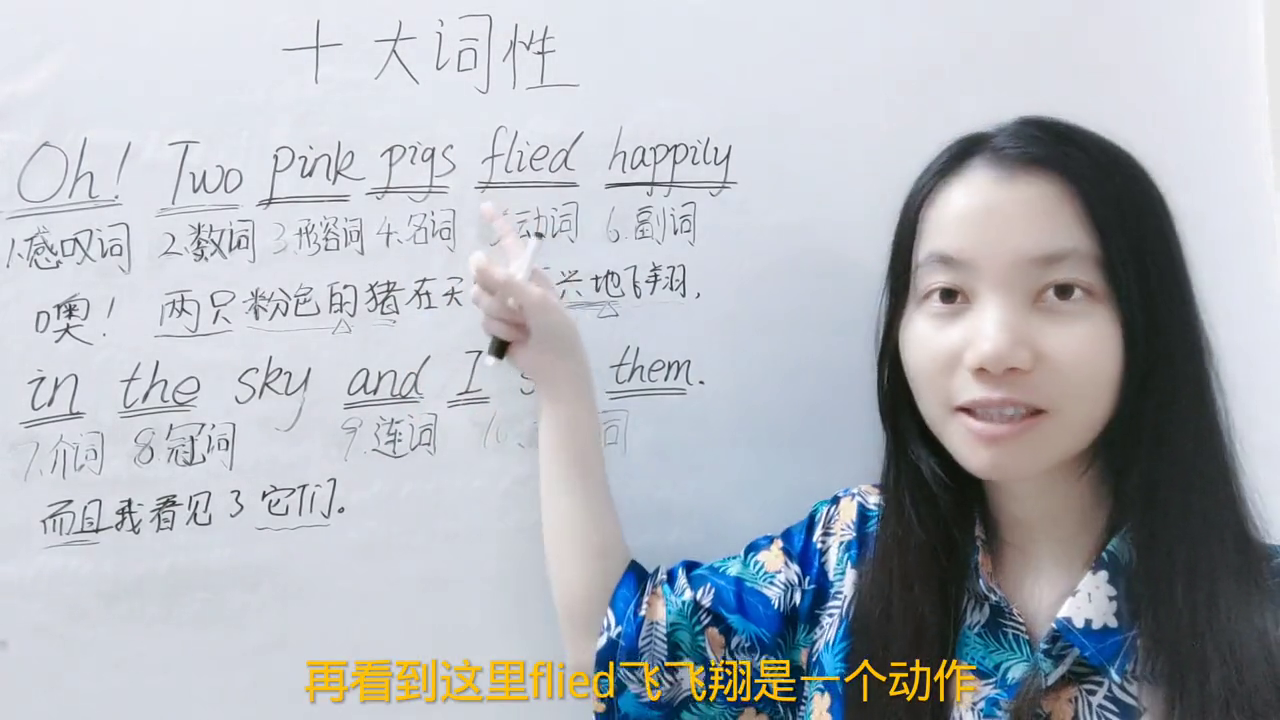 十大词性
Oh! Two pink pigs flied happily
1.感叹词 2.数词 3.形容词 4.名词 动词 6.副词
噢! 两只粉色的猪在天 兴地飞翔,
in the sky and I them.
7.介词 8.冠词 9.连词 词
而且我看见了它们。
再看到这里flied飞飞翔是一个动作